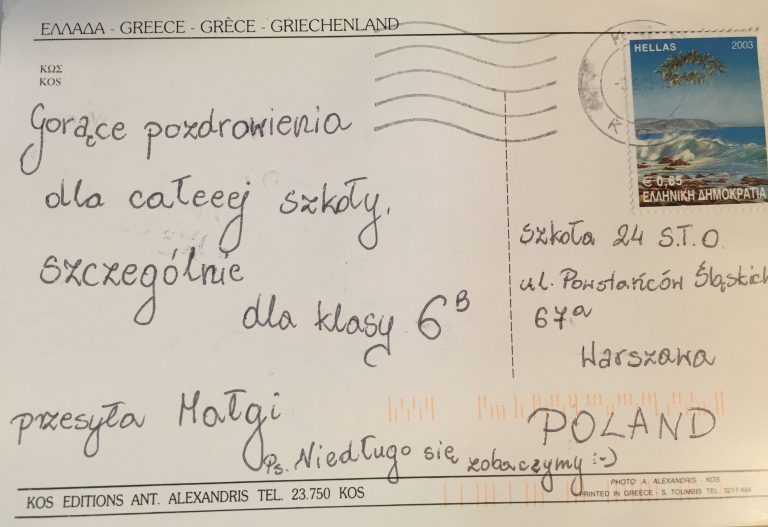 ΕΛΛΑΔΑ - GREECE - GRÈCE - GRIECHENLAND
ΚΩΣ
KOS
HELLAS 2003
€ 0,65
ΕΛΛΗΝΙΚΗ ΔΗΜΟΚΡΑΤΙΑ
Gorące pozdrowienia
dla całeeej szkoły,
szczególnie
dla klasy 6B
przesyła Małgi
Ps. Niedługo się zobaczymy :-)
Szkoła 24 S.T.O.
ul. Powstańców Śląskich
67a
Warszawa
POLAND
KOS EDITIONS ANT. ALEXANDRIS TEL. 23.750 KOS
PHOTO: A. ALEXANDRIS - KOS
PRINTED IN GREECE: S. TOUMBIS TEL. 3217.494